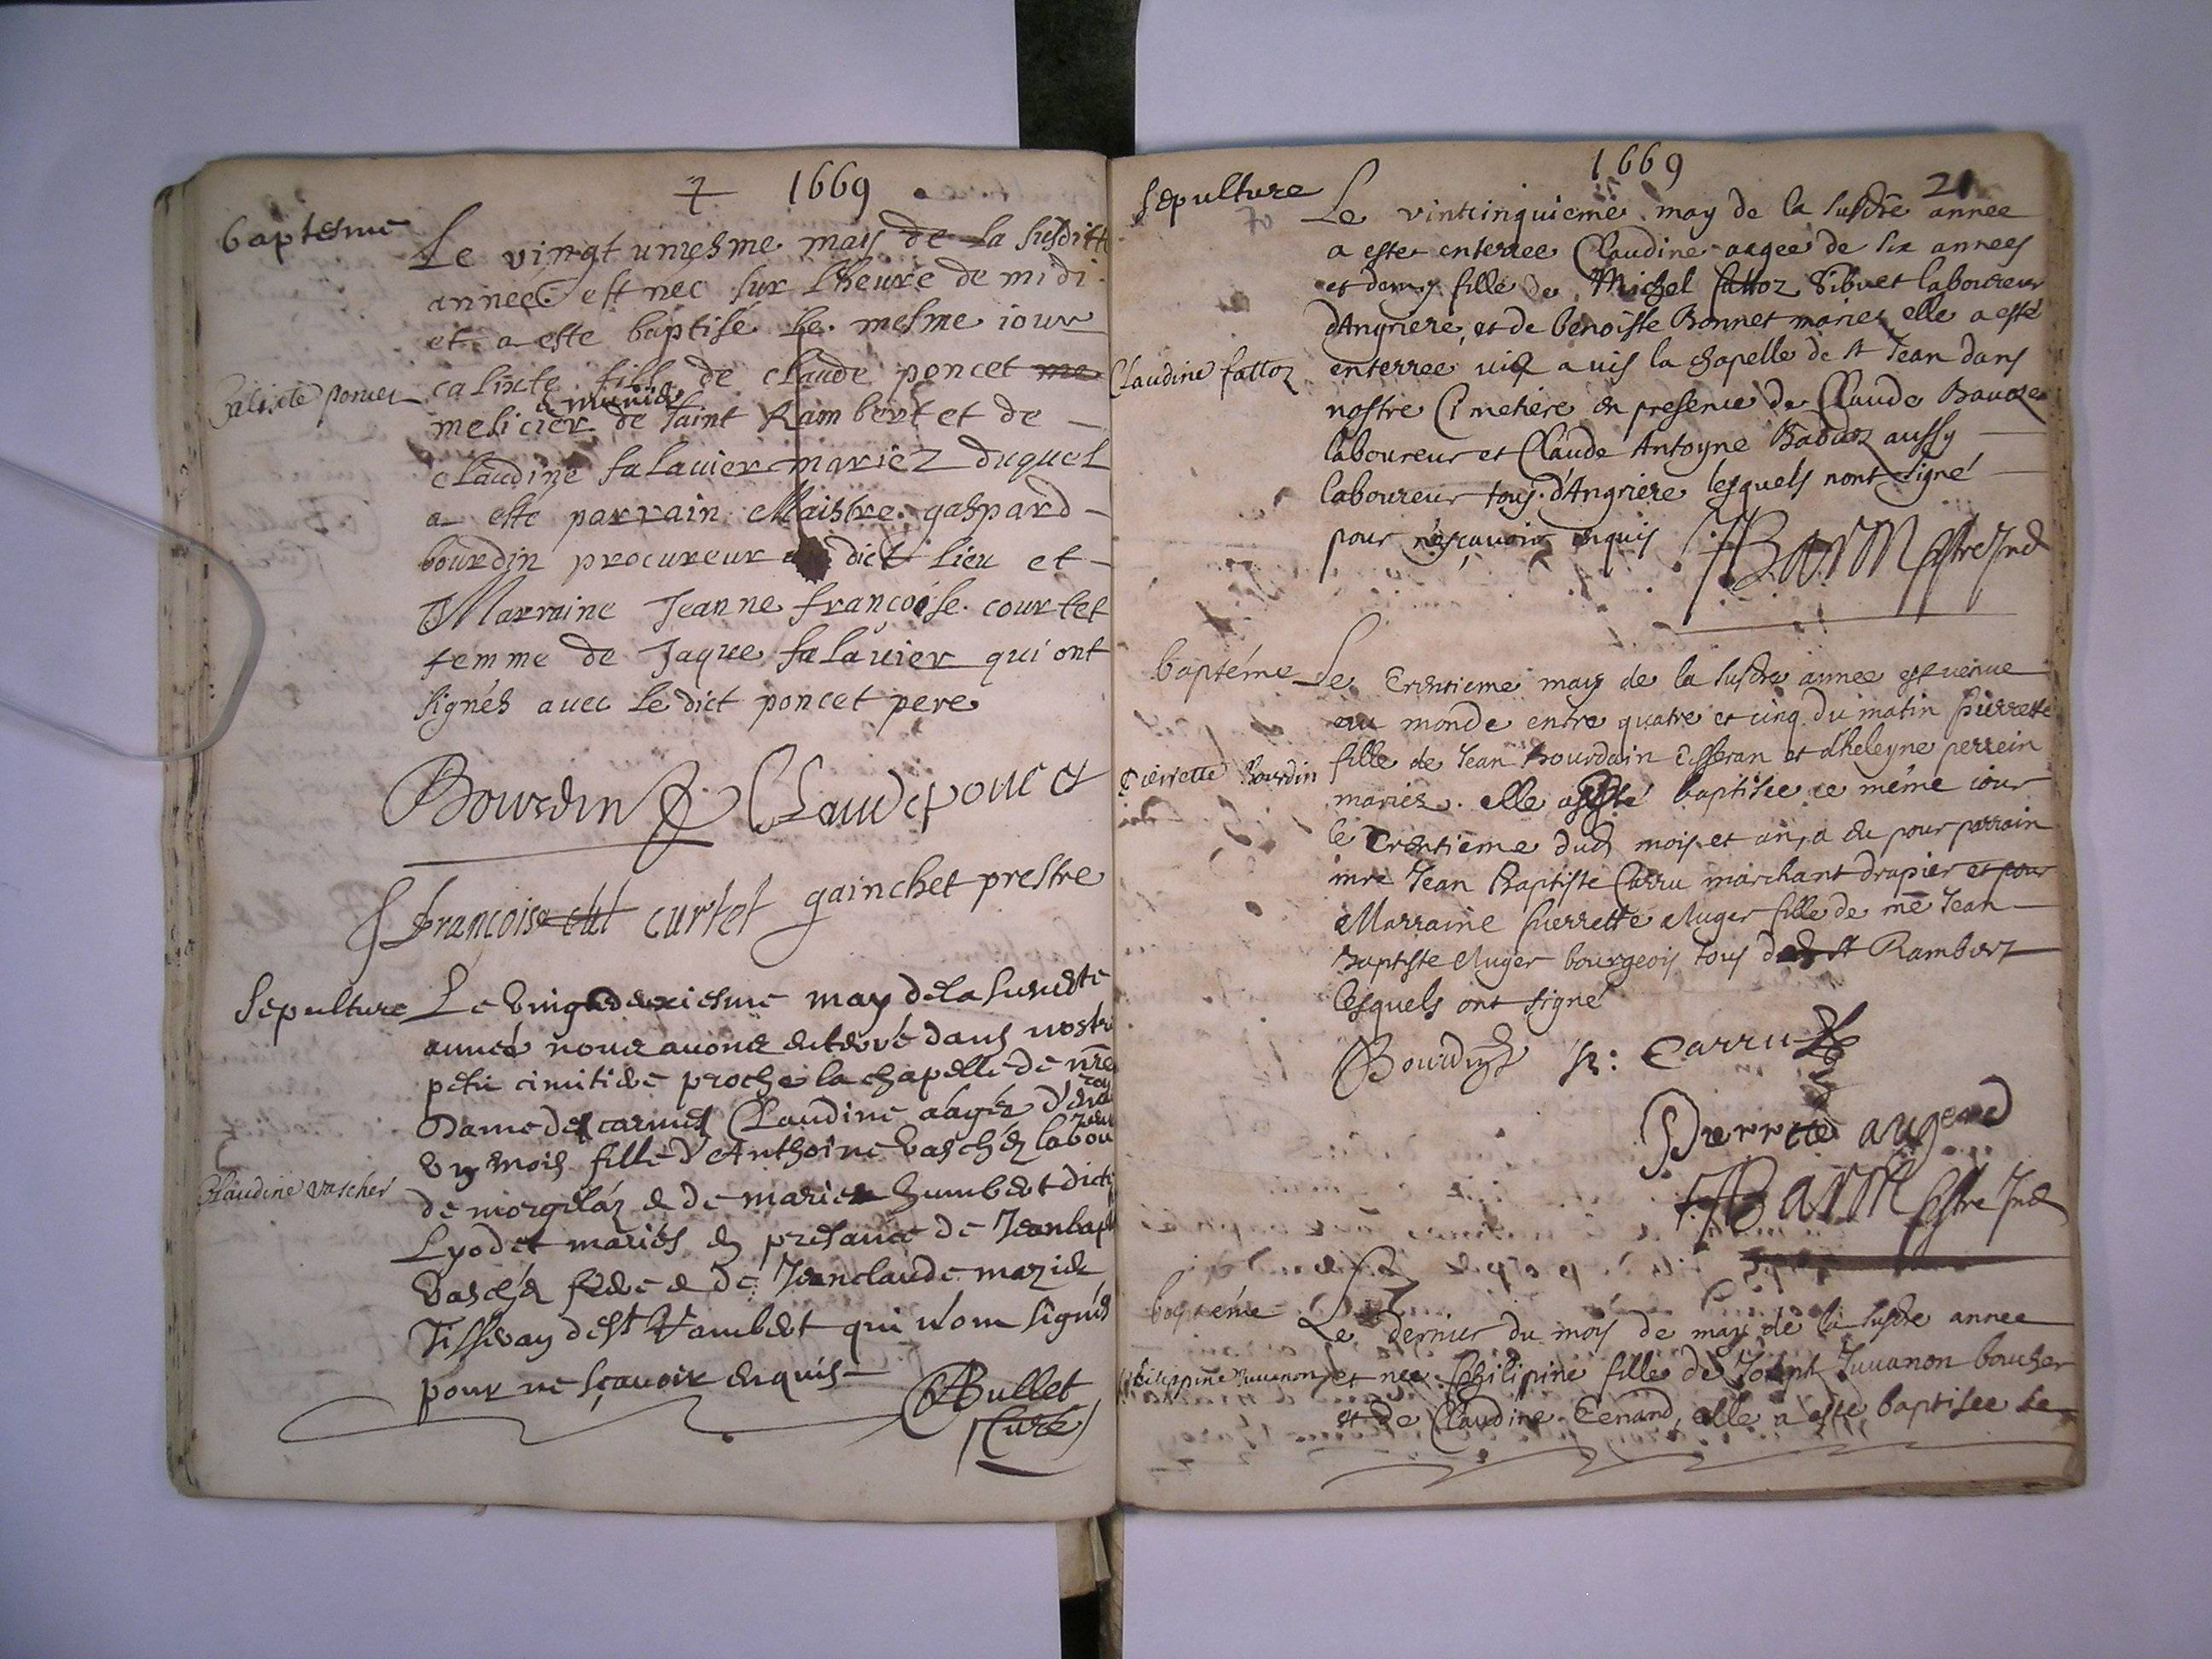 1669
baptesme
Le vingt uniesme may de la susditte
annee est nec sur l'heure de midi
et a este baptisé le mesme iour
Calixte poncet
calixte fils de claude poncet
melicier de saint Rambert et de
claudine salauier mariez duquel
a este parrain Maistre gaspard
bourdin procureur dict lieu et
Marraine Jeanne françoise courtet
femme de Jaque salauier qui ont
signés auec le dict poncet pere
Bourdin Claude poncet
françoise curtet gainchet prestre
Sepulture
Le vingtdeuxiesme may de la susdte
année nous auons enterré dans nostre
petit cimitiere proche la chapelle de nre
Dame des carmes Claudine aagée d'enui
ron
vn mois fille d'Anthoine vascher labou
reur
Claudine vascher
de morgelaz & de marie humbert dicte
Lyodet mariés en presance de Jeanbapt
vascher frere & de Jeanclaude mazier
Tisseran de st Rambert qui n'ont signés
pour ne sçauoir enquis
Bullet
Curé
1669
21
sepulture
Le vintcinquieme may de la susdte annee
a este enterree Claudine aagee de six annees
et demy fille de Michel fattoz Sibuet laboureur
d'Angriere, et de benoiste Bonnet mariez elle a esté
Claudine fattoz
enterree vis a vis la chapelle de st Jean dans
nostre Cimetiere en presence de Claude
laboureur et Claude Antoyne aussy
laboureur tous d'Angriere lesquels n'ont signé
pour ne sçauoir enquis
ptre Ind
baptéme
Le trentieme may de la susdte annee est venue
au monde entre quatre et cinq du matin pierrette
fille de Jean bourdain tisseran et d'heleyne perrein
Pierrette Bourdin
mariez. elle a esté baptisee ce méme iour
le trentieme dud mois et an, a eu pour parrain
mre Jean Baptiste Carru marchant drapier et pour
Marraine pierrette Auger fille de me Jean
Baptiste Auger bourgeois tous de st Rambert
lesquels ont signé
Bourdin Carru
Pierrette augerd
ptre Ind
baptéme
Le dernier du mois de may de la susdte annee
philippine Juuanon
est nee Philipine fille de Joseph Juuanon boucher
et de Claudine Tenand, elle a esté baptisee le